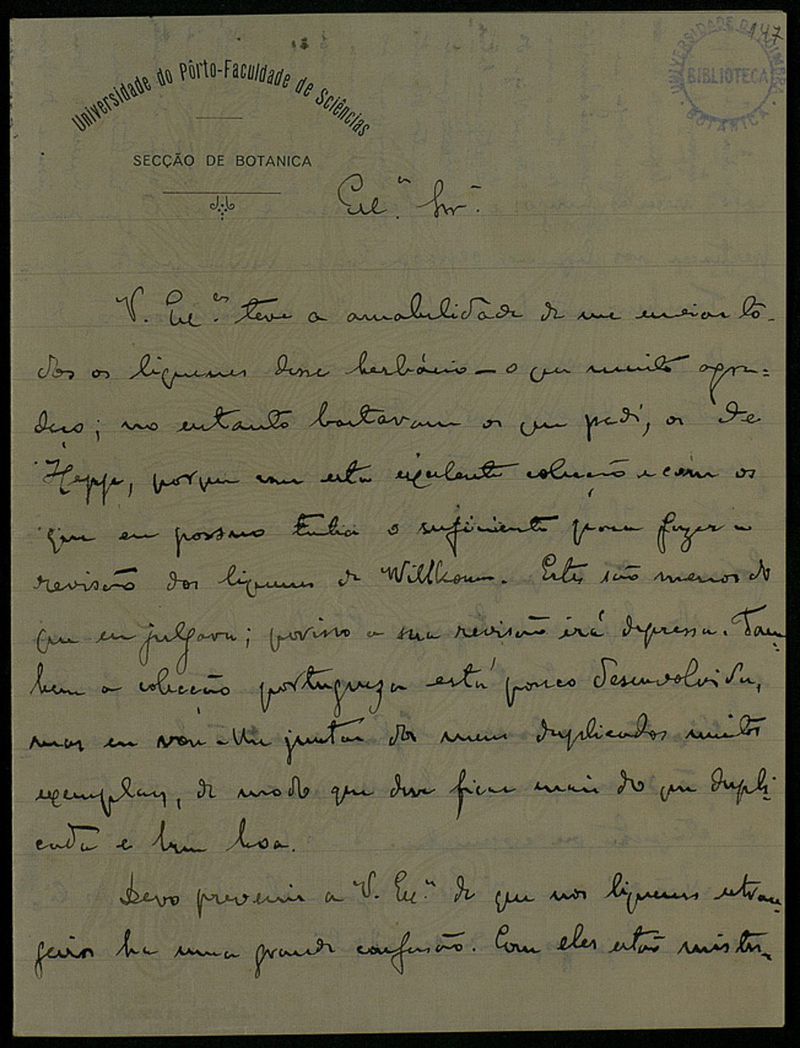 147
UNIVERSIDADE DE COIMBRA
BIBLIOTECA
BOTANICA
Universidade do Pôrto-Faculdade de Sciências
SECÇÃO DE BOTANICA
Ex.ᵐᵒ Snr.
V. Ex.ᶜⁱᵃ teve a amabilidade de me enviar to-
dos os liquenes desse herbário — o que muito agra-
deço; no entanto bastavam os que pedi, os de
Hepp, porque com esta excelente colecção e com os
que eu possuo tinha o suficiente para fazer a
revisão dos liquenes de Willkomm. Estes são menos do
que eu julgava; porisso a sua revisão irá depressa. Tam-
bem a colecção portugueza está pouco desenvolvida,
mas eu vou-lhe juntar dos meus duplicados muitos
exemplares, de modo que deve ficar mais do que dupli-
cada e bem boa.
Devo prevenir a V. Ex.ᶜⁱᵃ de que nos liquenes estran-
geiros ha uma grande confusão. Com eles estão mistu-